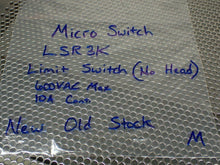 Micro Switch
LSR3K
Limit Switch (No Head)
600VAC Max
10A Cont.
New Old Stock
M